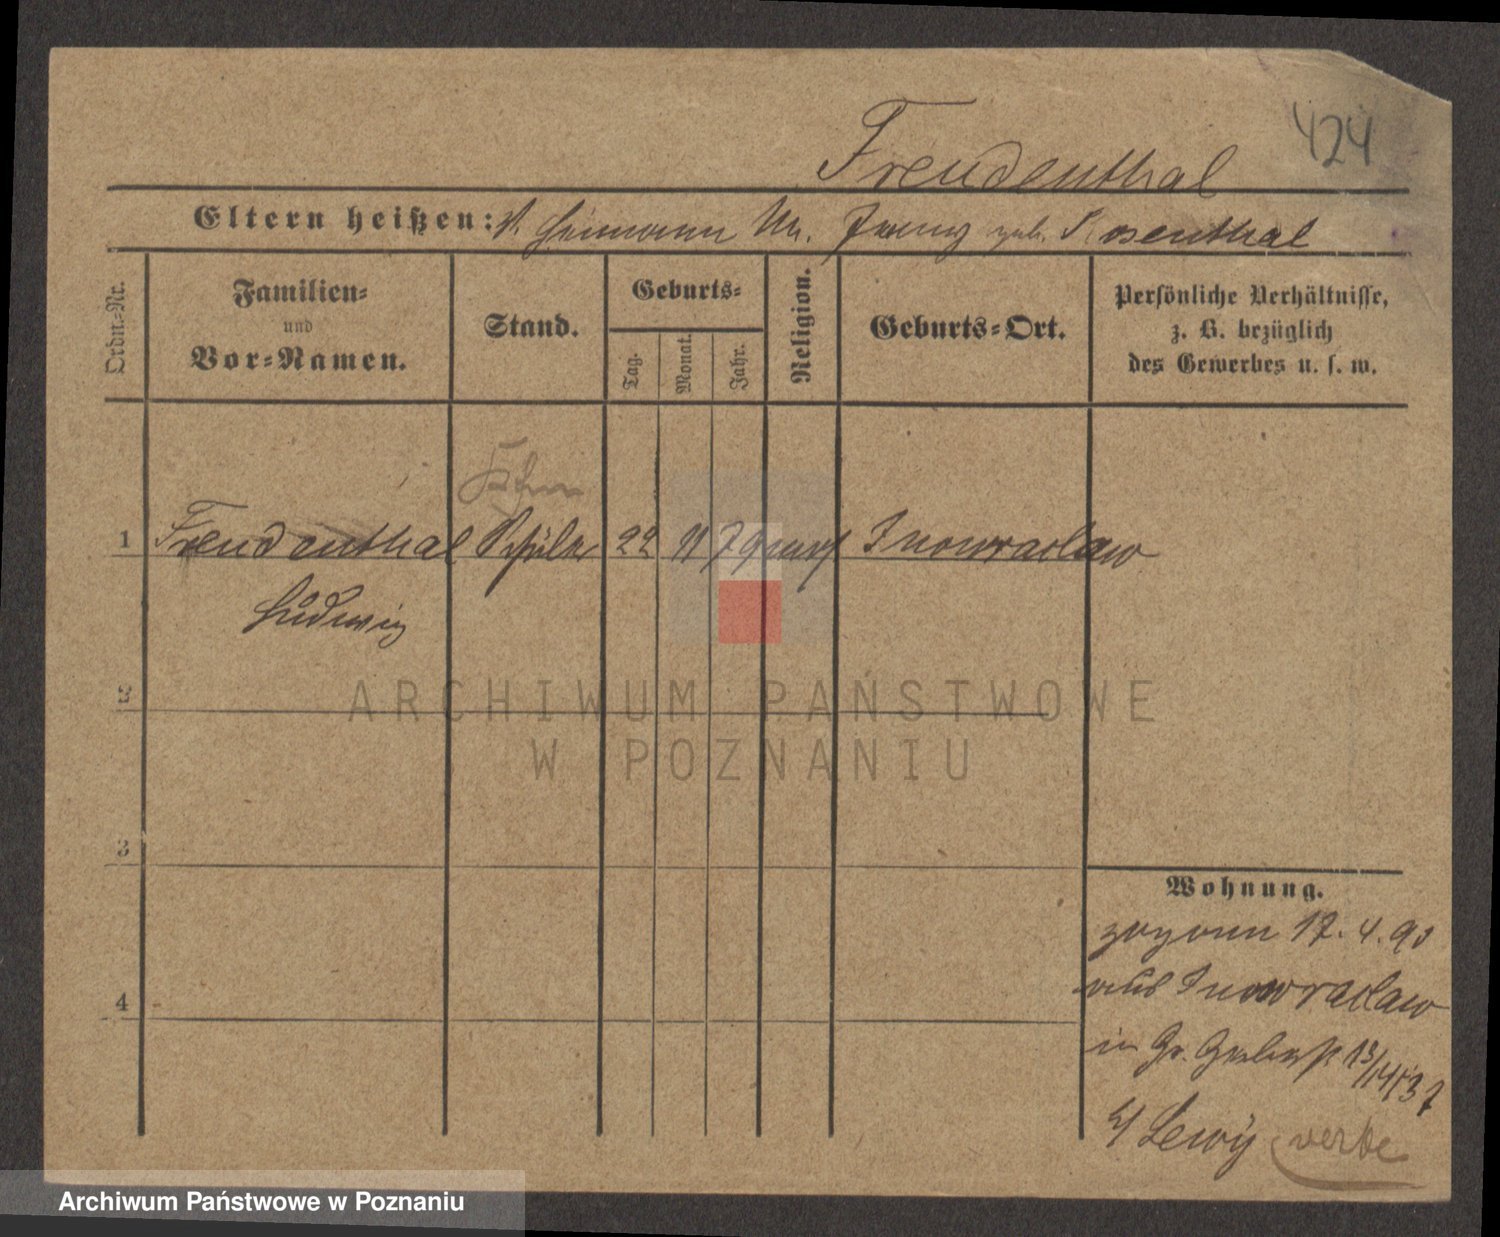 424
Freudenthal
Eltern heißen: V. Heimann M. geb. Rosenthal
Ordn.-Nr.
Familien-
und
Vor-Namen.
Stand.
Geburts-
Tag.
Monat.
Jahr.
Religion.
Geburts-Ort.
Persönliche Verhältnisse,
z. B. bezüglich
des Gewerbes u. s. w.
1 Freudenthal Schüler 22 11 79 mos Inowraclaw
Ludwig
2
3
4
Wohnung.
zogen 17. 4. 90
aus Inowraclaw
in Gr. Gerberst 13/14
b/ Lewy
ARCHIWUM PAŃSTWOWE
W POZNANIU
Archiwum Państwowe w Poznaniu